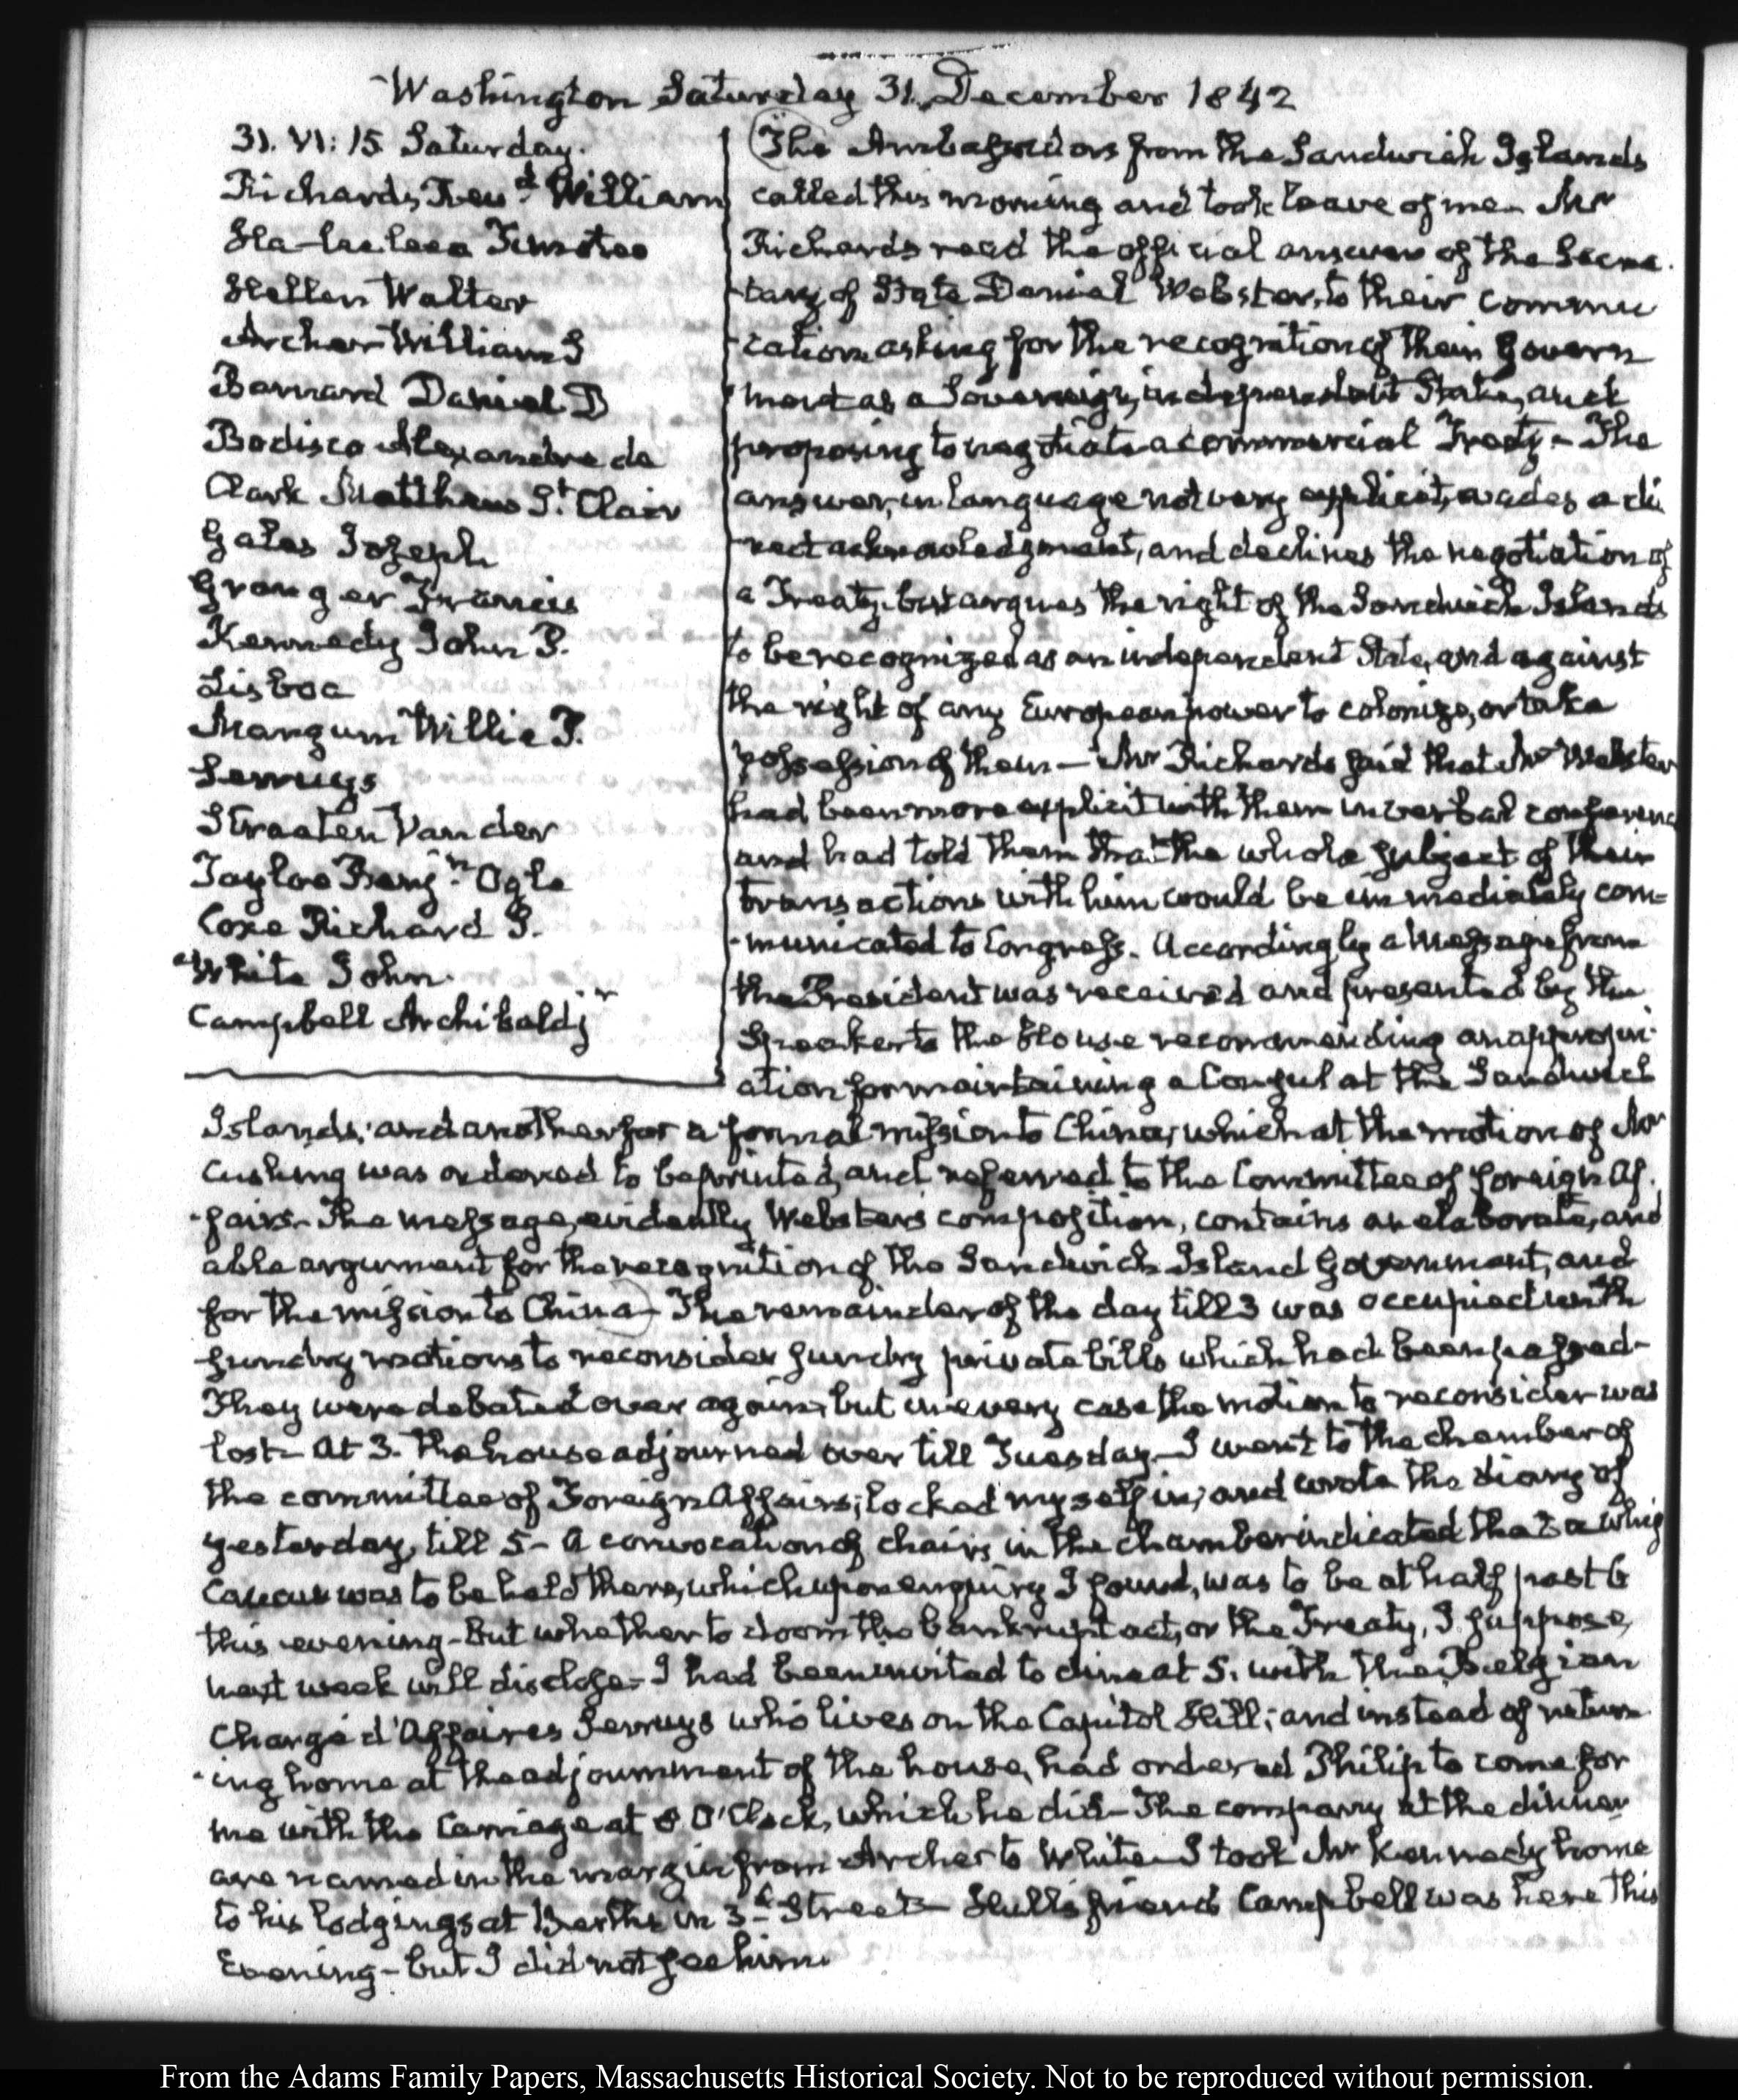 Washington Saturday 31. December 1842
31. VI: 15 Saturday.
Richards Revd. William
Ha-lee-leea Timoteo
Hellen Walter
Archer William S
Barnard Daniel D
Bodisco Alexandre de
Clark Matthew St. Clair
Gales Joseph
Granger Francis
Kennedy John P.
Lisboa
Mangum Willie P.
Serruys
Straeten Van der
Tayloe Benjn. Ogle
Coxe Richard S.
White John
Campbell Archibald jr
The Ambassadors from the Sandwich Islands
called this morning and took leave of me. Mr
Richards read the official answer of the Secre-
-tary of State Daniel Webster, to their commu
-cation asking for the recognition of their Govern
-ment as a Sovereign, independent State, and
proposing to negotiate a commercial Treaty - The
answer, in language not very explicit, evades a di
-rect acknowledgment, and declines the negotiation of
a Treaty, but argues the right of the Sandwich Islands
to be recognized as an independent State, and against
the right of any European power to colonize, or take
possession of them - Mr Richards said that Mr Webster
had been more explicit with them in verbal conference
and had told them that the whole subject of their
transactions with him would be immediately com=
-municated to Congress. Accordingly a Message from
the President was received and presented by the
Speaker to the House recommending an appropri-
ation for maintaining a Consul at the Sandwich
Islands; and another for a formal mission to China; which at the motion of Mr
Cushing was ordered to be printed, and referred to the Committee of foreign Af-
-fairs. The message, evidently Webster's composition, contains an elaborate, and
able argument for the recognition of the Sandwich Island Government, and
for the mission to China - The remainder of the day till 3 was occupied with
sundry motions to reconsider sundry private bills which had been passed-
They were debated over again, but in every case the motion to reconsider was
lost- At 3. the house adjourned over till Tuesday- I went to the chamber of
the committee of Foreign Affairs; locked myself in; and wrote the diary of
yesterday, till 5- A convocation of chairs in the chamber indicated that a whig
Caucus was to be held there, which upon enquiry I found, was to be at half past 6
this evening- But whether to doom the bankrupt act, or the Treaty, I suppose,
next week will disclose- I had been invited to dine at 5. with the Belgian
Chargé d'Affaires Serruys who lives on the Capitol Hill; and instead of return
-ing home at the adjournment of the house, had ordered Philip to come for
me with the Carriage at 8 O'Clock, which he did- The company at the dinner
are named in the margin from Archer to White- I took Mr Kennedy home
to his lodgings at in 3d Street- Hull's friend Campbell was here this
Evening- but I did not see him.
From the Adams Family Papers, Massachusetts Historical Society. Not to be reproduced without permission.